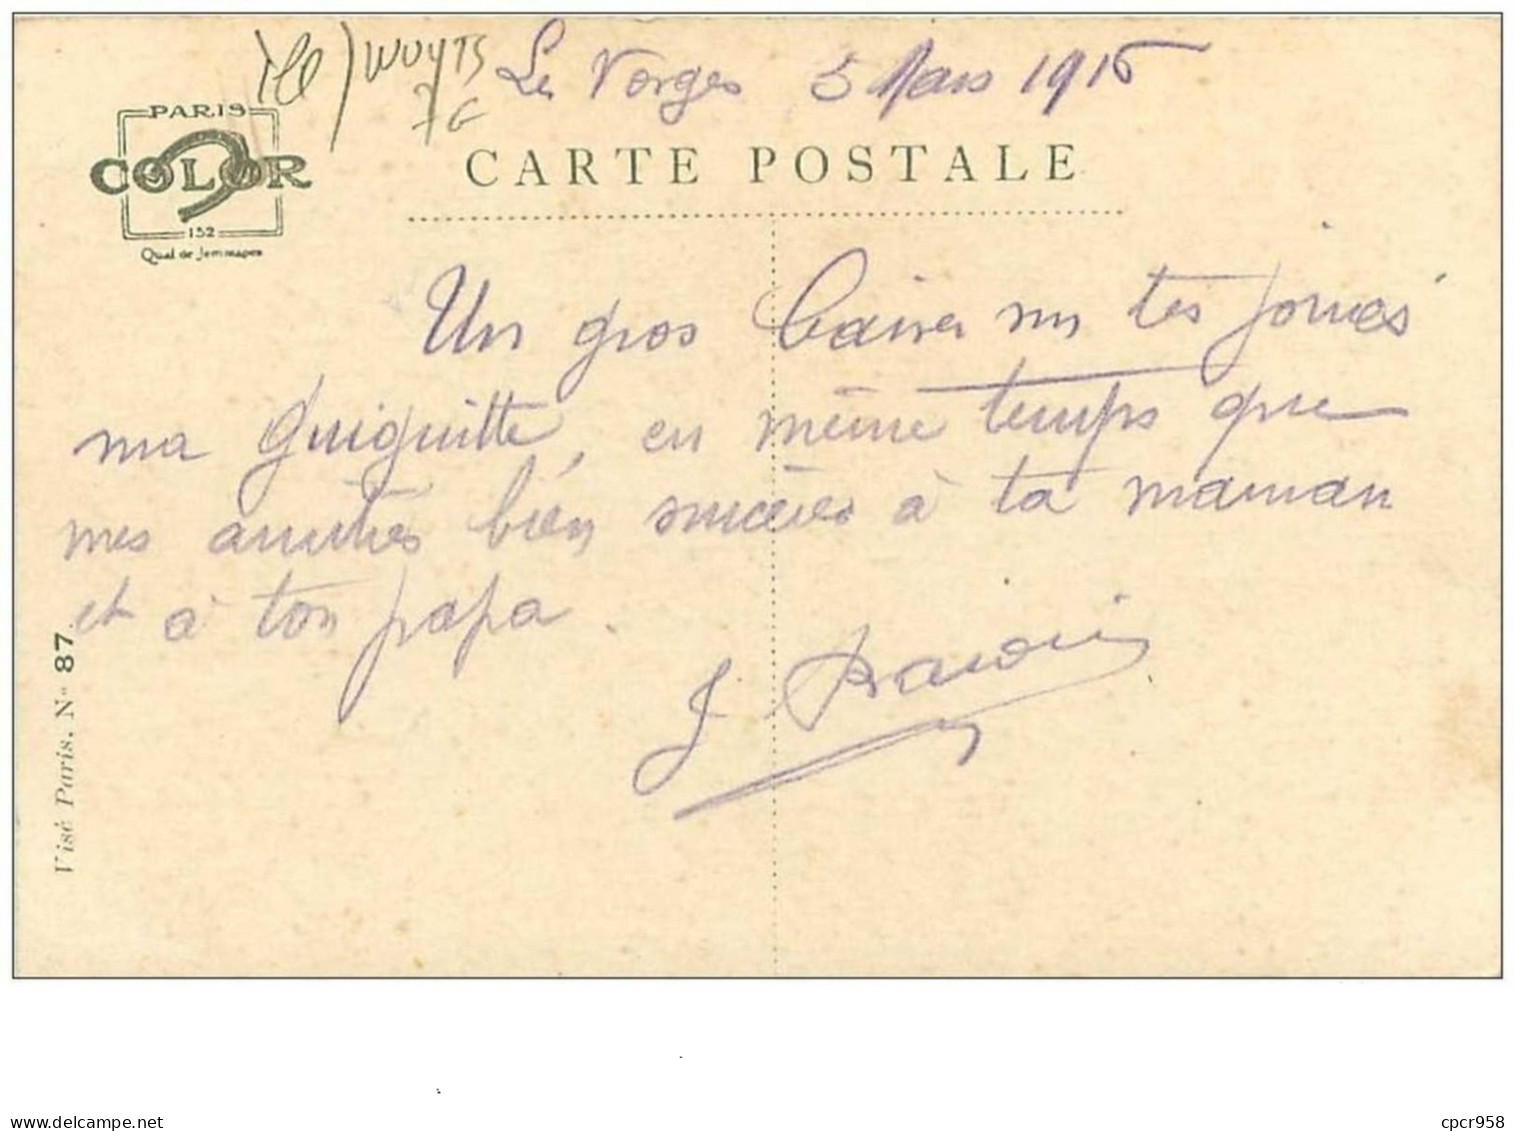 Ill) WUYTS
7 €
Les Vosges 5 Mars 1916
PARIS
COLOR
152
Quai de Jemmapes
CARTE POSTALE
Un gros baiser sur tes joues
ma Guiguitte, en même temps que
mes amitiés bien sincères à ta maman
et à ton papa.
J
Visé Paris. N° 87
cpcr958